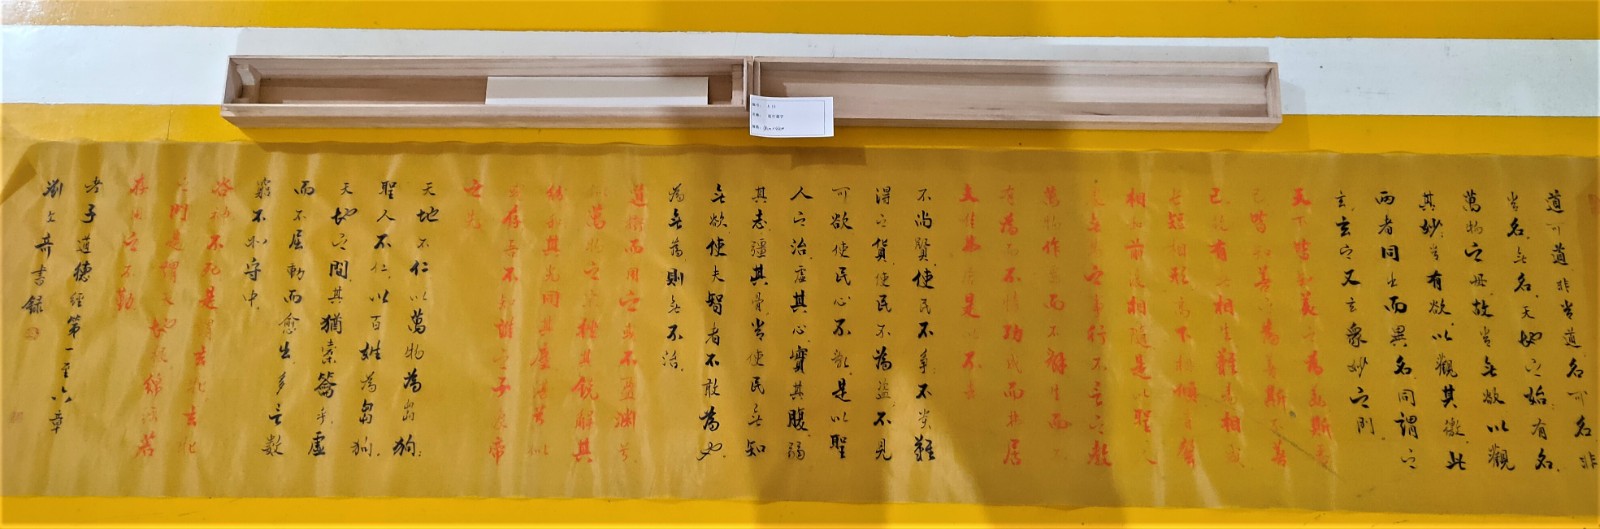 道可道非常道名可名非
常名無名天地之始有名
萬物之母故常無欲以觀
其妙常有欲以觀其徼此
兩者同出而異名同謂之
玄玄之又玄眾妙之門
天下皆知美之為美斯惡
已皆知善之為善斯不善
已故有無相生難易相成
長短相形高下相傾音聲
相和前後相隨是以聖人
處無為之事行不言之教
萬物作焉而不辭生而不
有為而不恃功成而弗居
夫唯弗居是以不去
不尚賢使民不爭不貴難
得之貨使民不為盜不見
可欲使民心不亂是以聖
人之治虛其心實其腹弱
其志彊其骨常使民無知
無欲使夫智者不敢為也
為無為則無不治
道沖而用之或不盈淵兮
似萬物之宗挫其銳解其
紛和其光同其塵湛兮似
或存吾不知誰之子象帝
之先
天地不仁以萬物為芻狗
聖人不仁以百姓為芻狗
天地之間其猶橐籥乎虛
而不屈動而愈出多言數
窮不如守中
谷神不死是謂玄牝玄牝
之門是謂天地根綿綿若
存用之不勤
老子道德經第一至六章
劉文奇書錄